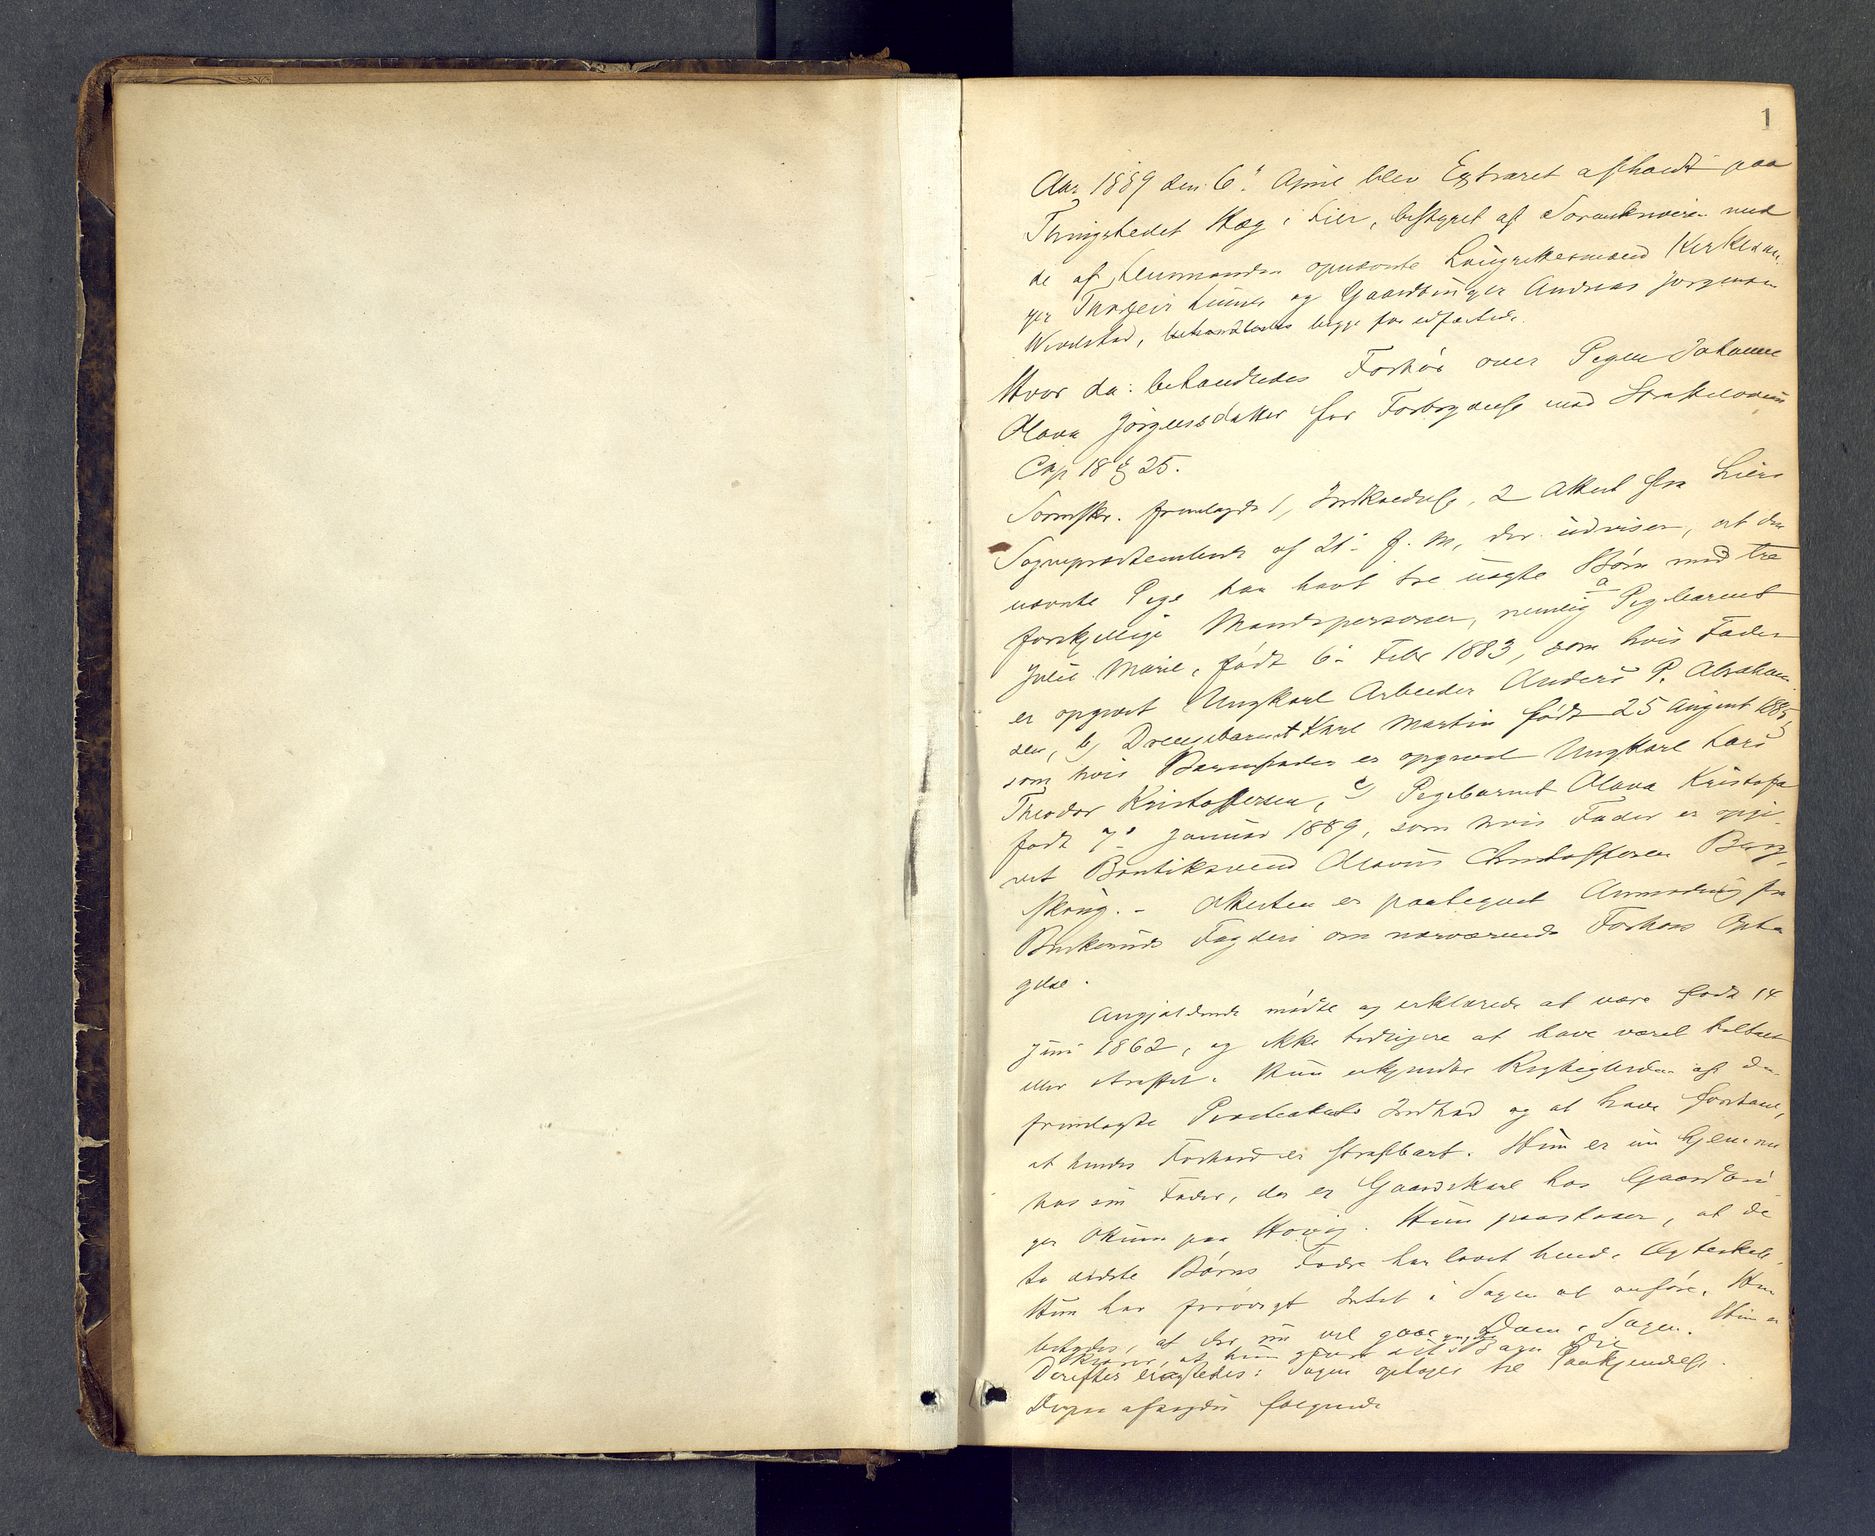 1
Aar 1889 den 6' April blev Extraret afholdt paa
Thingstedet Hæg i Lier, bestyret af Sorenskriveren med
de af Lensmanden opnævnte Laugrettesmænd Kirkesan-
ger Thorgeir Lunde og Gaardbruger Andreas Jørgensen
behandledes begge for edfæstede.
Hvor da: behandledes Forhør over Pigen Johanne
Olava Jørgensdatter for Forbrydelse mod Straffelovens
Cap 18 § 25.
Sorenskr. fremlagde 1, Indkaldelse, 2 Attest fra Liers
Sogneprestembede af 21' f. M, der udviser, at den
nævnte Pige har havt tre uægte Børn med tre
forskjellige Mandspersoner, nemlig a Pigebarnet
Julie Marie, født 6' Febr 1883, som hvis Fader
er opgivet Ungkarl Arbeider Anders P. Abraham-
sen, b) Drengebarnet Karl Martin født 25 August 1885,
som hvis Barnefader er opgivet Ungkarl Lars
Theodor Kristoffersen, c) Pigebarnet Olava Kristofa
født 7' Januar 1889, som hvis Fader er opgi-
vet Boutiksvend Olavus Christoffersen Berg-
skoug. - Attesten er paategnet Anmodning fra
Buskeruds Fogderi om nærværende Forhørs Opta
gelse.
Angjældende mødte og erklærede at være født 14
Juni 1862, og ikke tidligere at have været tiltalt
eller straffet. Hun erkjendte Rigtigheden af det
fremlagte Indhold og at have forstaaet,
at hendes Forhold er strafbart. Hun er nu hjemme
hos sin Fader, der er Gaardskarl hos Gaardbru
ger paa Hovig. Hun paastaaer, at de
to sidste Børns Fædre har lovet hende Ægteskab.
Hun har forøvrigt Intet i Sagen at anføre. Hun
betydes, at der nu vil gaae Dom i Sagen. Hun er
at hun giver sit yngste Barn Die
Derefter eragtedes: Sagen optages til Paakjendelse.
afsagdes følgende